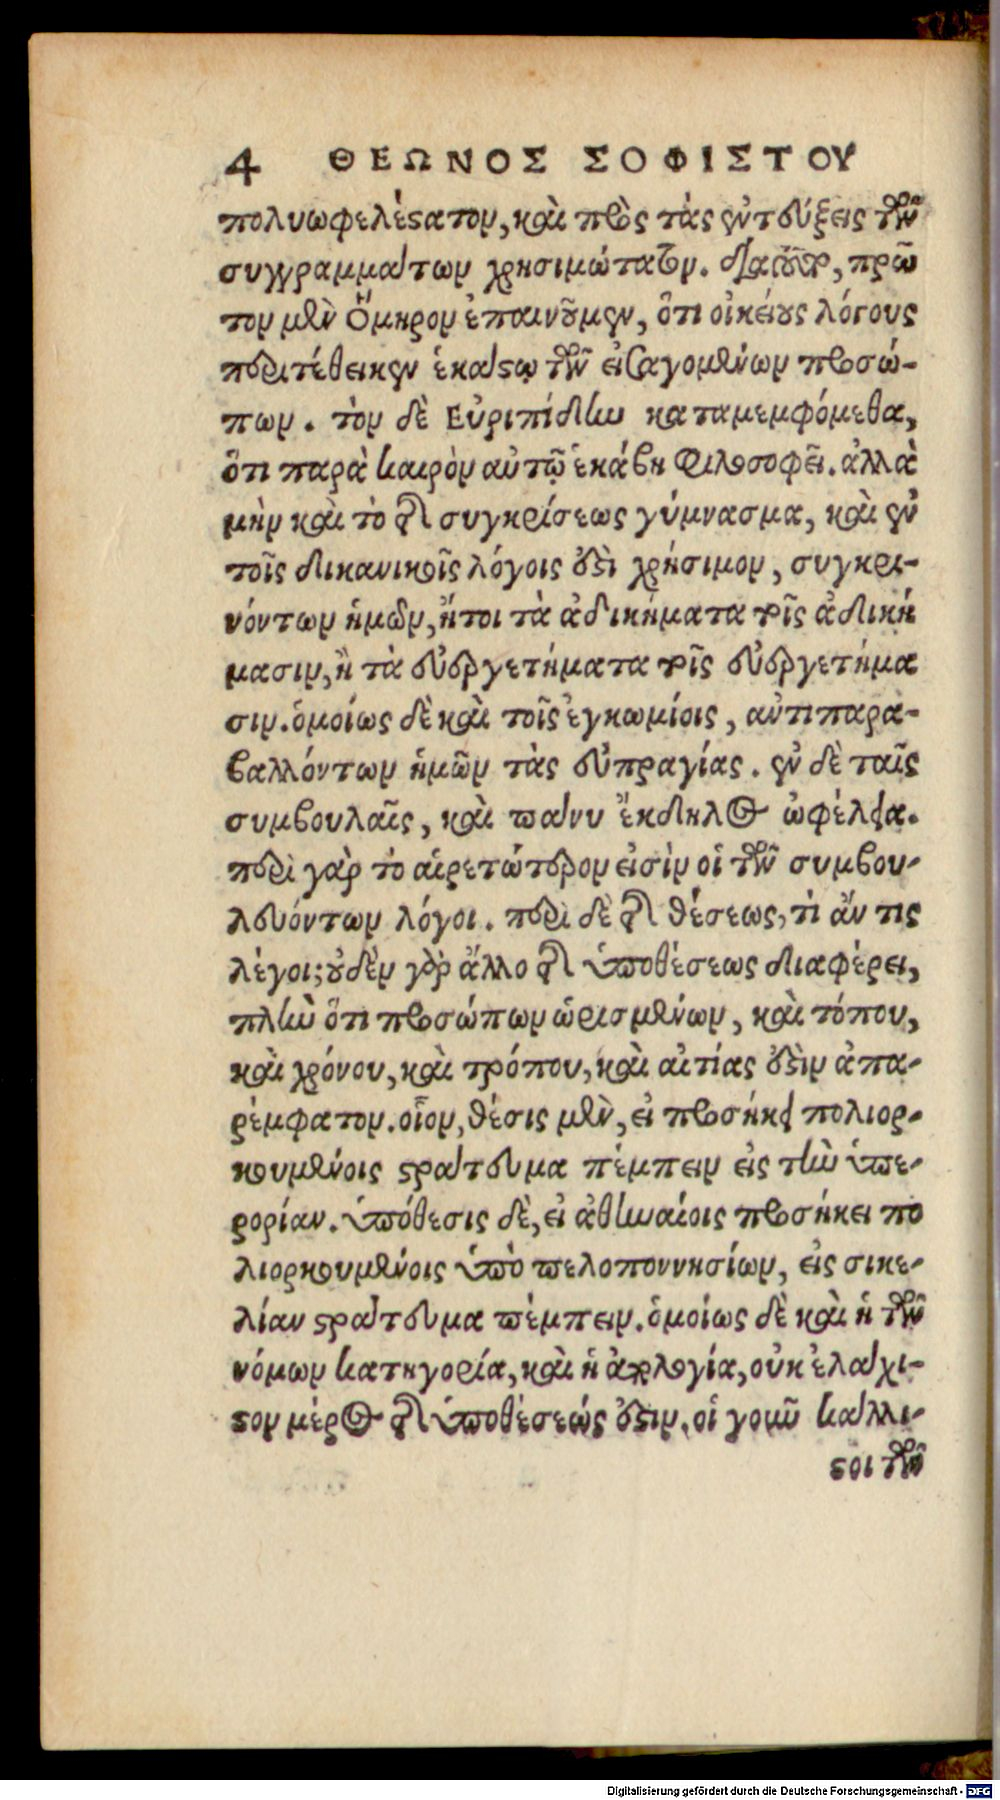 4 ΘΕΩΝΟΣ ΣΟΦΙΣΤΟΥ
πολυωφελέστατον, καὶ πρὸς τὰς ἐντεύξεις τῶν
συγγραμμάτων χρησιμώτατον. πρῶ
τον μὲν Ὅμηρον ἐπαινοῦμεν, ὅτι οἰκείους λόγους
περιτέθεικεν ἑκάστῳ τῶν εἰσαγομένων προσώ-
πων. τὸν δὲ Εὐριπίδην καταμεμφόμεθα,
ὅτι παρὰ καιρὸν αὐτῷ ἑκάβη φιλοσοφεῖ. ἀλλὰ
μὴν καὶ τὸ τῆς συγκρίσεως γύμνασμα, καὶ ἐν
τοῖς δικανικοῖς λόγοις ἐστὶ χρήσιμον, συγκρι-
νόντων ἡμῶν, ἤτοι τὰ ἀδικήματα τοῖς ἀδική
μασιν, ἢ τὰ εὐεργετήματα τοῖς εὐεργετήμα
σιν. ὁμοίως δὲ καὶ τοῖς ἐγκωμίοις, ἀντιπαρα-
βαλλόντων ἡμῶν τὰς εὐπραγίας. ἐν δὲ ταῖς
συμβουλαῖς, καὶ πάνυ ἔκδηλος ὠφέλεια.
περὶ γὰρ τὸ αἱρετώτερον εἰσὶν οἱ τῶν συμβου-
λευόντων λόγοι. περὶ δὲ τῆς θέσεως, τὶ ἄν τις
λέγοι; οὐδὲν γὰρ ἄλλο τῆς ὑποθέσεως διαφέρει,
πλὴν ὅτι προσώπων ὡρισμένων, καὶ τόπου,
καὶ χρόνου, καὶ τρόπου, καὶ αἰτίας ἐστὶν ἀπα-
ρέμφατον. οἷον, θέσις μὲν, εἰ προσήκει πολιορ-
κουμένοις στράτευμα πέμπειν εἰς τὴν ὑπε-
ρορίαν. ὑπόθεσις δὲ, εἰ ἀθηναίοις προσήκει πο
λιορκουμένοις ὑπὸ πελοποννησίων, εἰς σικε-
λίαν στράτευμα πέμπειν. ὁμοίως δὲ καὶ ἡ τῶν
νόμων κατηγορία, καὶ ἡ ἀπολογία, οὐκ ἐλάχι-
στον μέρος τῆς ὑποθέσεώς ἐστιν. οἱ γοῦν κάλλι-
στοι τῶν
Digitalisierung gefördert durch die Deutsche Forschungsgemeinschaft - DFG